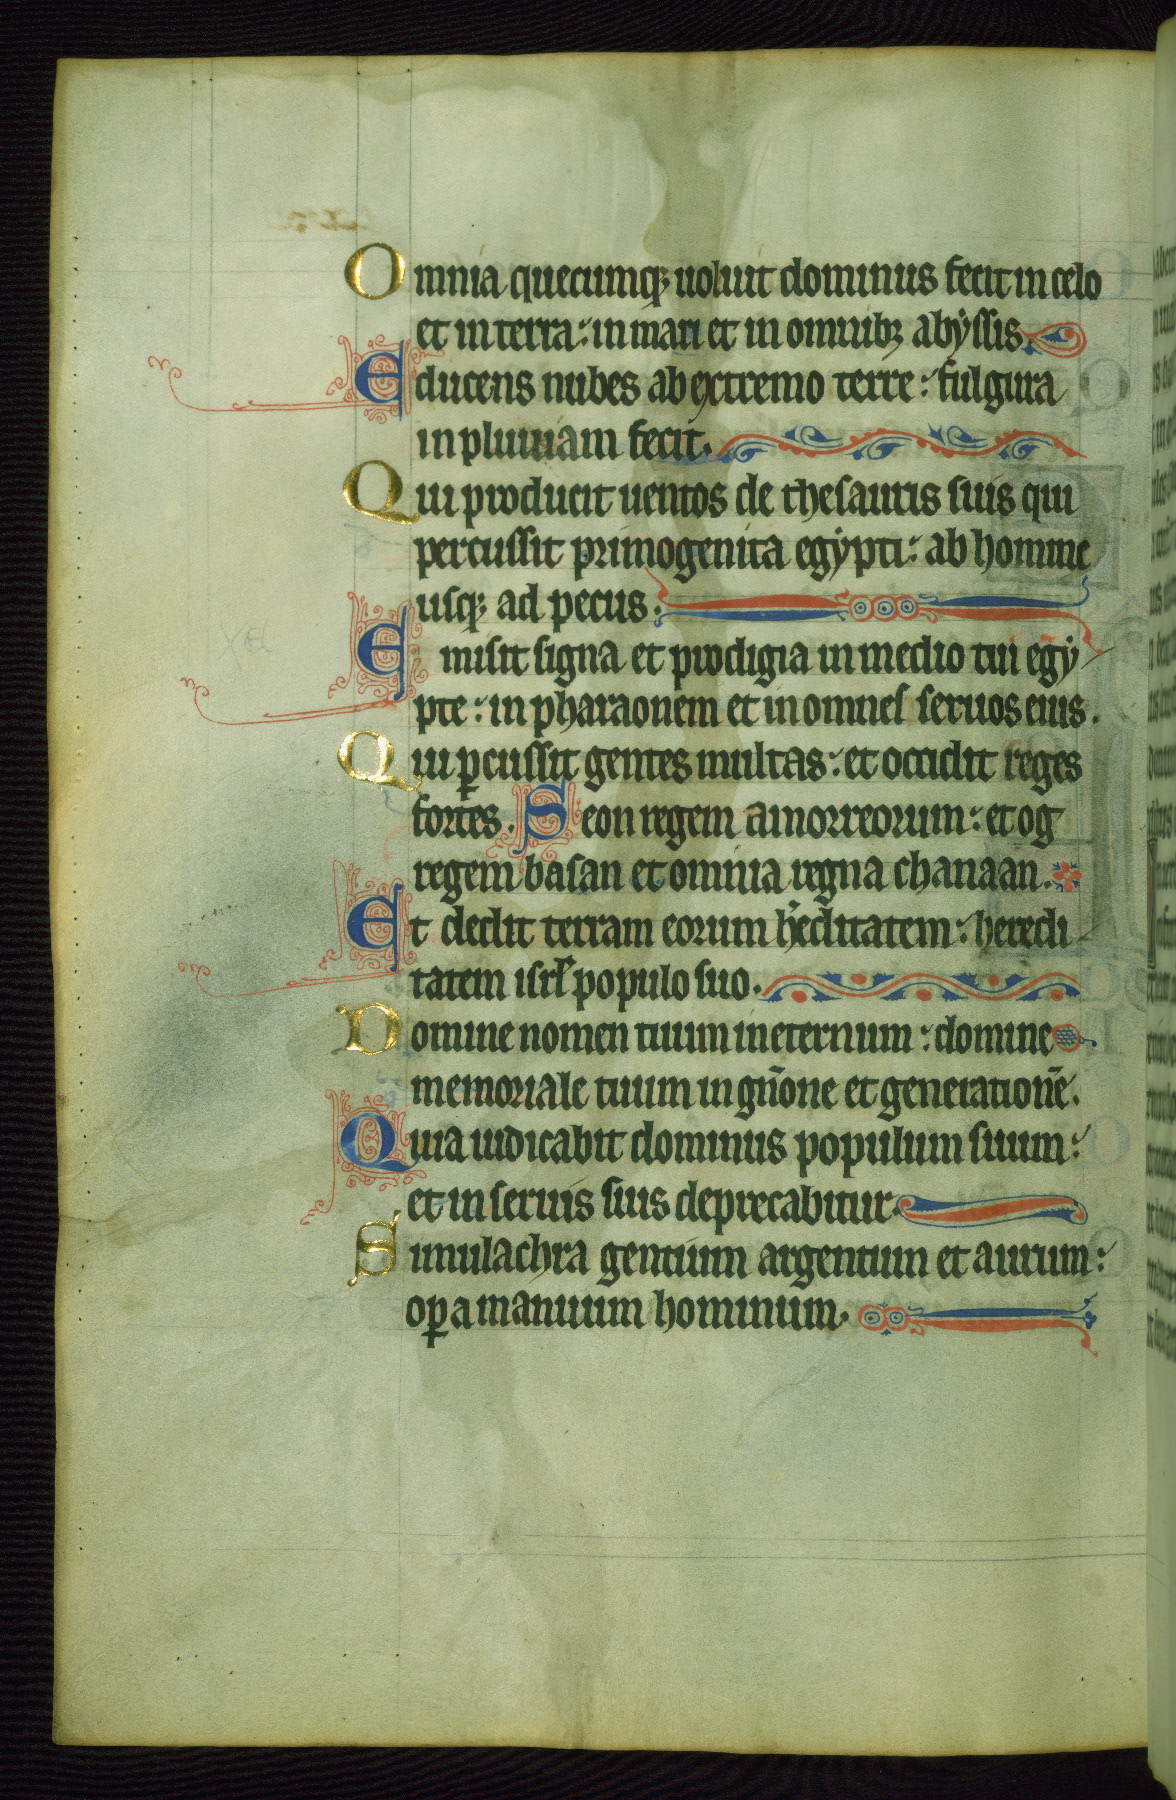 Omnia quecumq; uoluit dominus fecit in celo
et in terra: in mari et in omnib; abyssis.
Educens nubes ab extremo terre: fulgura
in pluuiam fecit.
Qui producit uentos de thesauris suis qui
percussit primogenita egypti: ab homine
usq; ad pecus:
Emisit signa et prodigia in medio tui egy
pte: in pharaonem et in omnes seruos eius.
Qui p̱cussit gentes multas: et occidit reges
fortes. Seon regem amorreorum: et og
regem basan et omnia regna chanaan.
Et dedit terram eorum h̓editatem: heredi
tatem isrl̓ populo suo.
Domine nomen tuum in eternum: domine
memoriale tuum in gn̄one et generationē.
Quia iudicabit dominus populum suum:
et in seruis suis deprecabitur.
Simulachra gentium argentum et aurum:
op̱a manuum hominum.